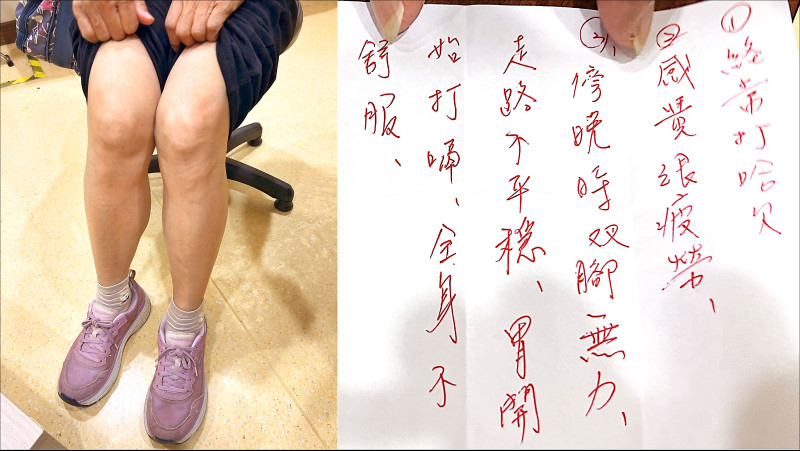 ①終常打哈欠
②感覺很疲勞、
③、傍晚時双腳無力、
走路不平穩、胃開
始打嗝、全身不
舒服、